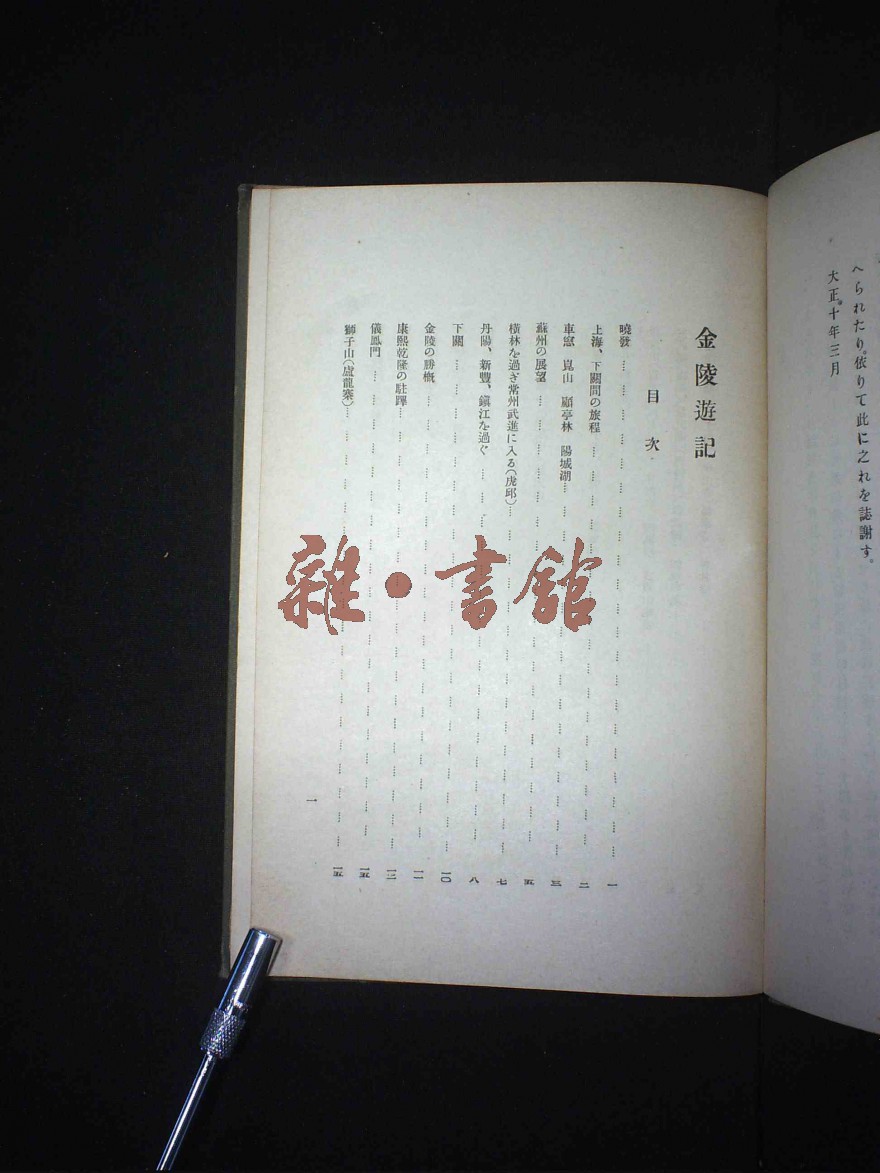 へられたり。依りて此に之れを誌謝す。
大正十年三月
金陵遊記
目次
曉發 一
上海、下關間の旅程 二
車窓 崑山 顧亭林 陽城湖 三
蘇州の展望 五
橫林を過ぎ常州武進に入る(虎邱) 七
丹陽、新豐、鎭江を過ぐ 八
下關 一〇
金陵の勝槪 一二
康熙乾隆の駐蹕 一三
儀鳳門 一五
獅子山(盧龍寨) 一五
一
雜·書館